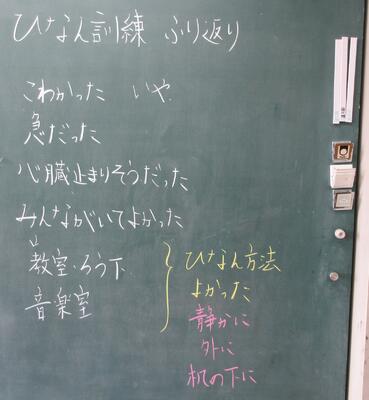 ひなん訓練 ふり返り
こわかった いや
急だった
心臓止まりそうだった
みんながいてよかった
教室・ろう下
音楽室
ひなん方法
よかった
静かに
外に
机の下に